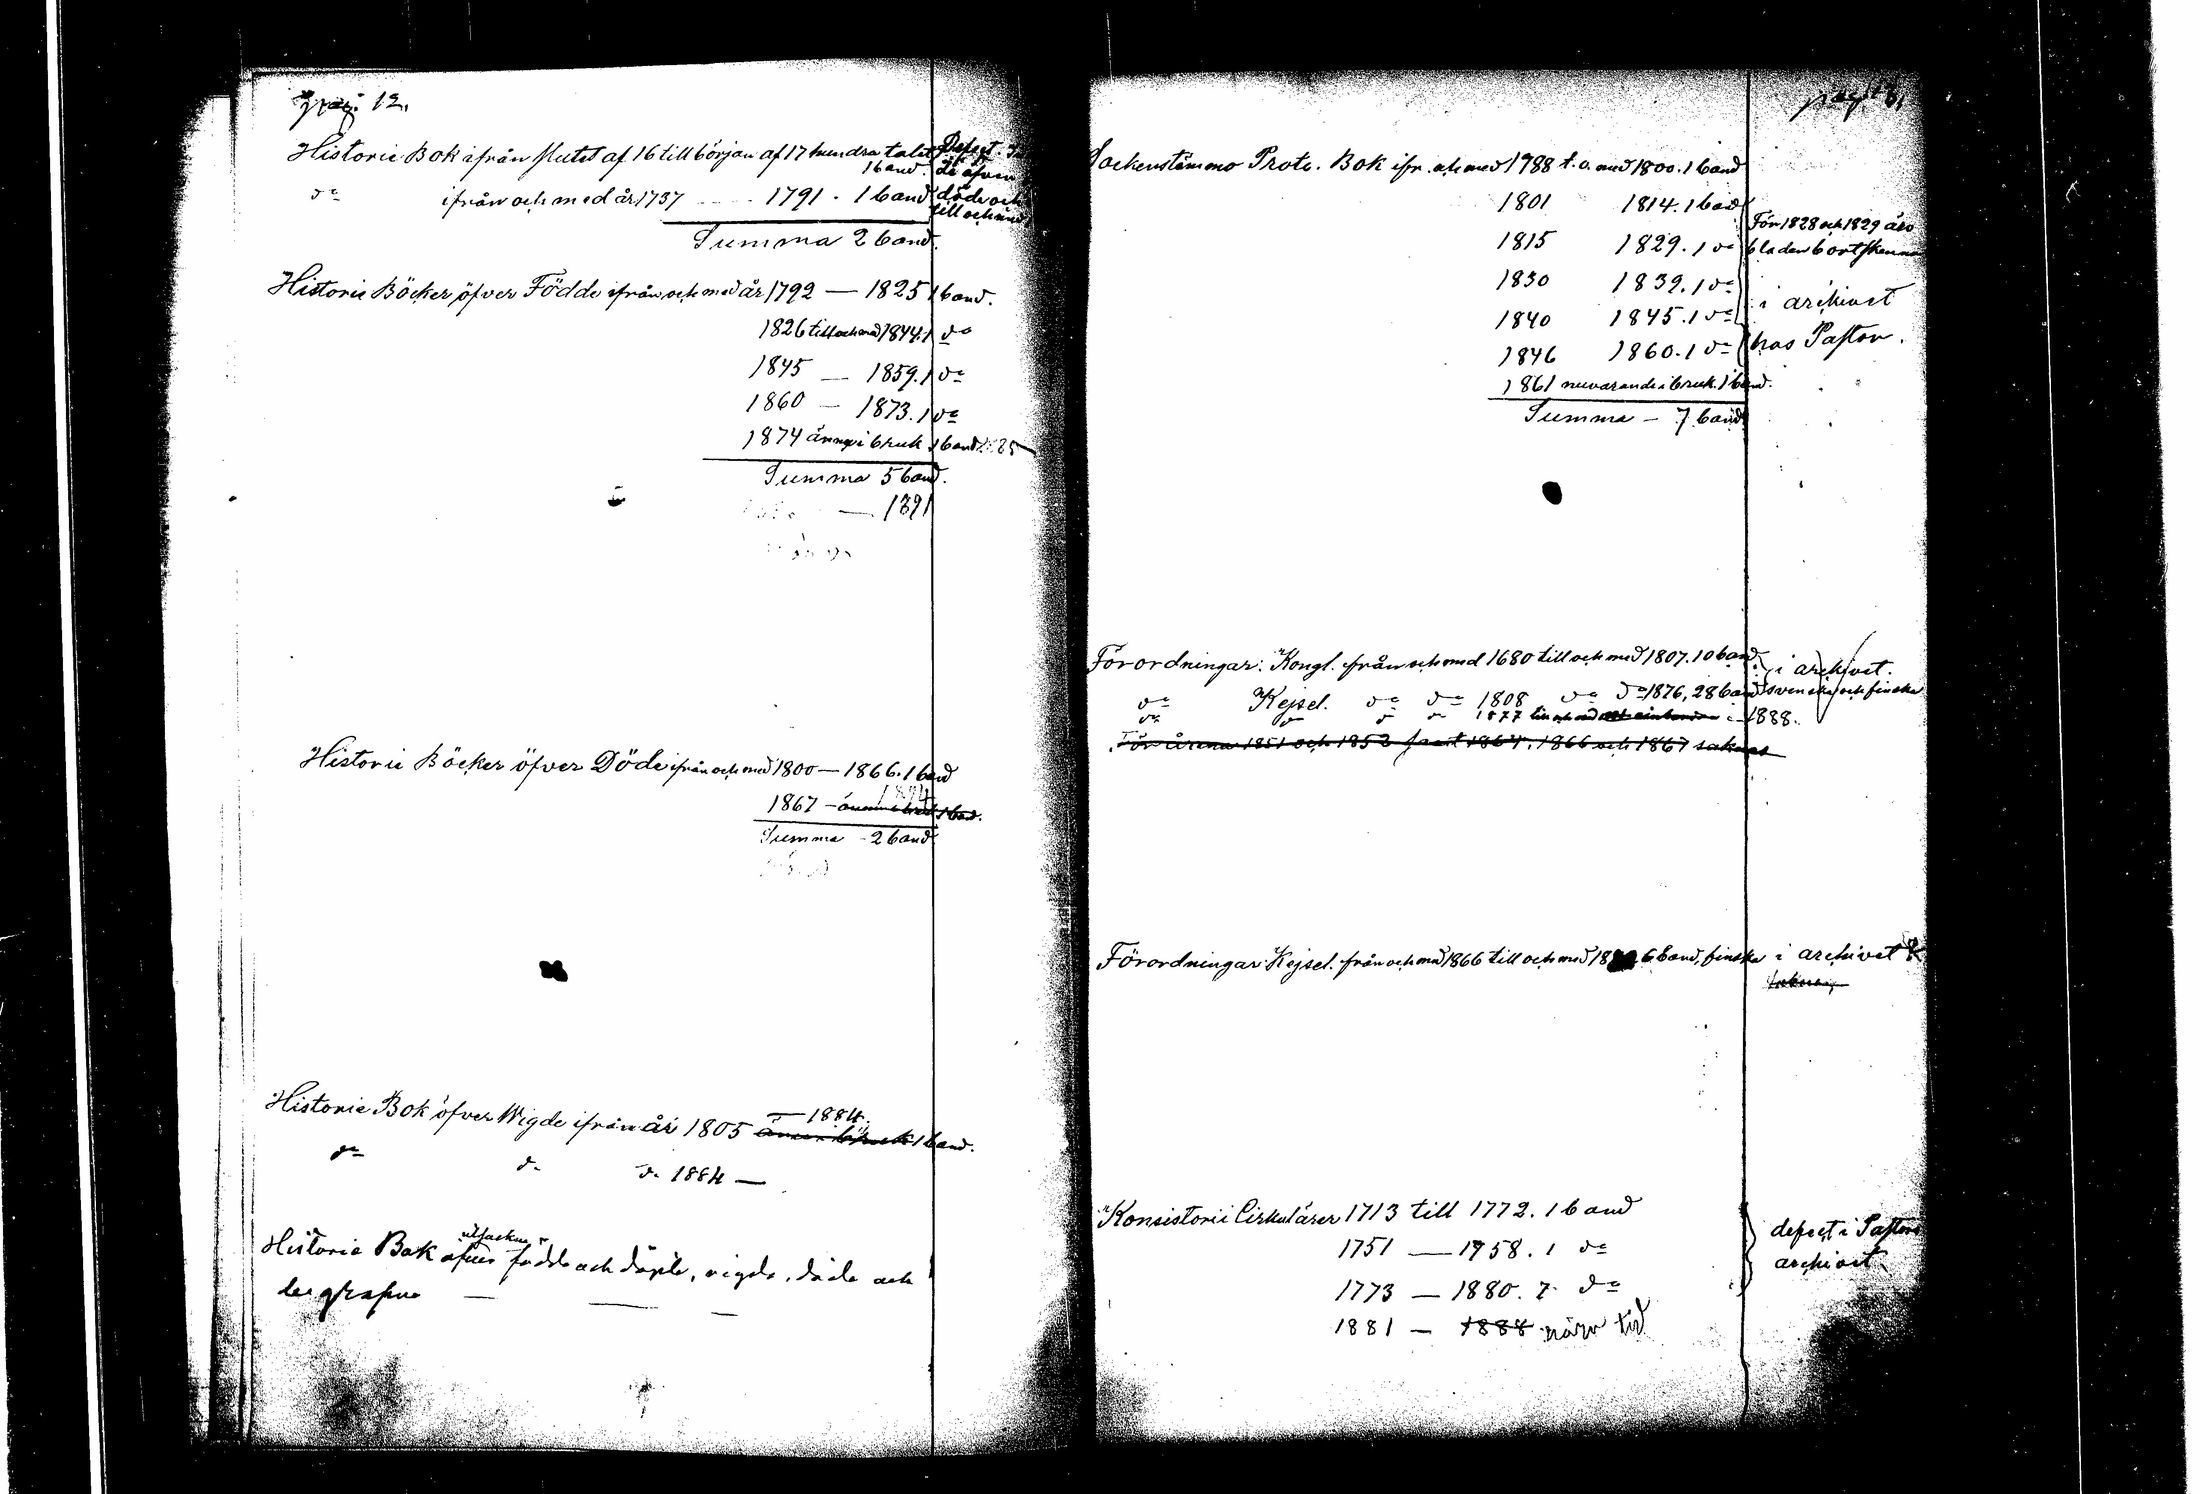 pag. 12.
Historie Bok ifrån slutet af 16 till början af 17 hundra talet Defect.
1 band. de öfver
dº ifrån och med år 1737 ..... 1791. 1 band döde och
till och med
Summa 2 band.
Historie Böcker öfver Födde ifrån och med år 1792 — 1825 1 band.
1826 till och med 1844. 1 dº
1845 — 1859. 1 dº
1860 — 1873. 1 dº
1874 ännu i bruk 1 band
Summa 5 band.
— 1891
Historie Böcker öfver Döde ifrån och med 1800 — 1866. 1 band
1894
1867 — ännu i bruk 1 band.
Summa - 2 band
Historie Bok öfver Wigde ifrån år 1805 ännu i bruk 1 band.
— 1884.
dº dº dº 1884 —
Historie Bok öfver födde och döpte, vigda, döda och
begrafna
pag.
Sockenstämmo Proto. Bok ifr. och med 1788 t. o. med 1800. 1 band
1801 1814. 1 band
För 1828 och 1829 äro
1815 1829. 1 dº bladen bortskurna
1830 1839. 1 dº i archivet
1840 1845. 1 dº
1846 1860. 1 dº hos Pastor.
1861 nuvarande i bruk. 1 band.
Summa — 7 band
Förordningar: Kongl. från och med 1680 till och med 1807. 10 band. i archivet.
dº Kejsel. dº dº 1808 dº dº 1876, 28 band svenska och finska
dº dº dº dº 1877 till och med 1888.
För årena 1851 och 1853 samt 1864, 1866 och 1867 saknas
Förordningar Kejsel. från och med 1866 till och med 18 6 band, finska i archivet
saknas
Konsistorii Cirkulärer 1713 till 1772. 1 band
1751 — 1758. 1 dº
defect i Pastors
archivet
1773 — 1880. 7 dº
1881 — 1888 närv tid